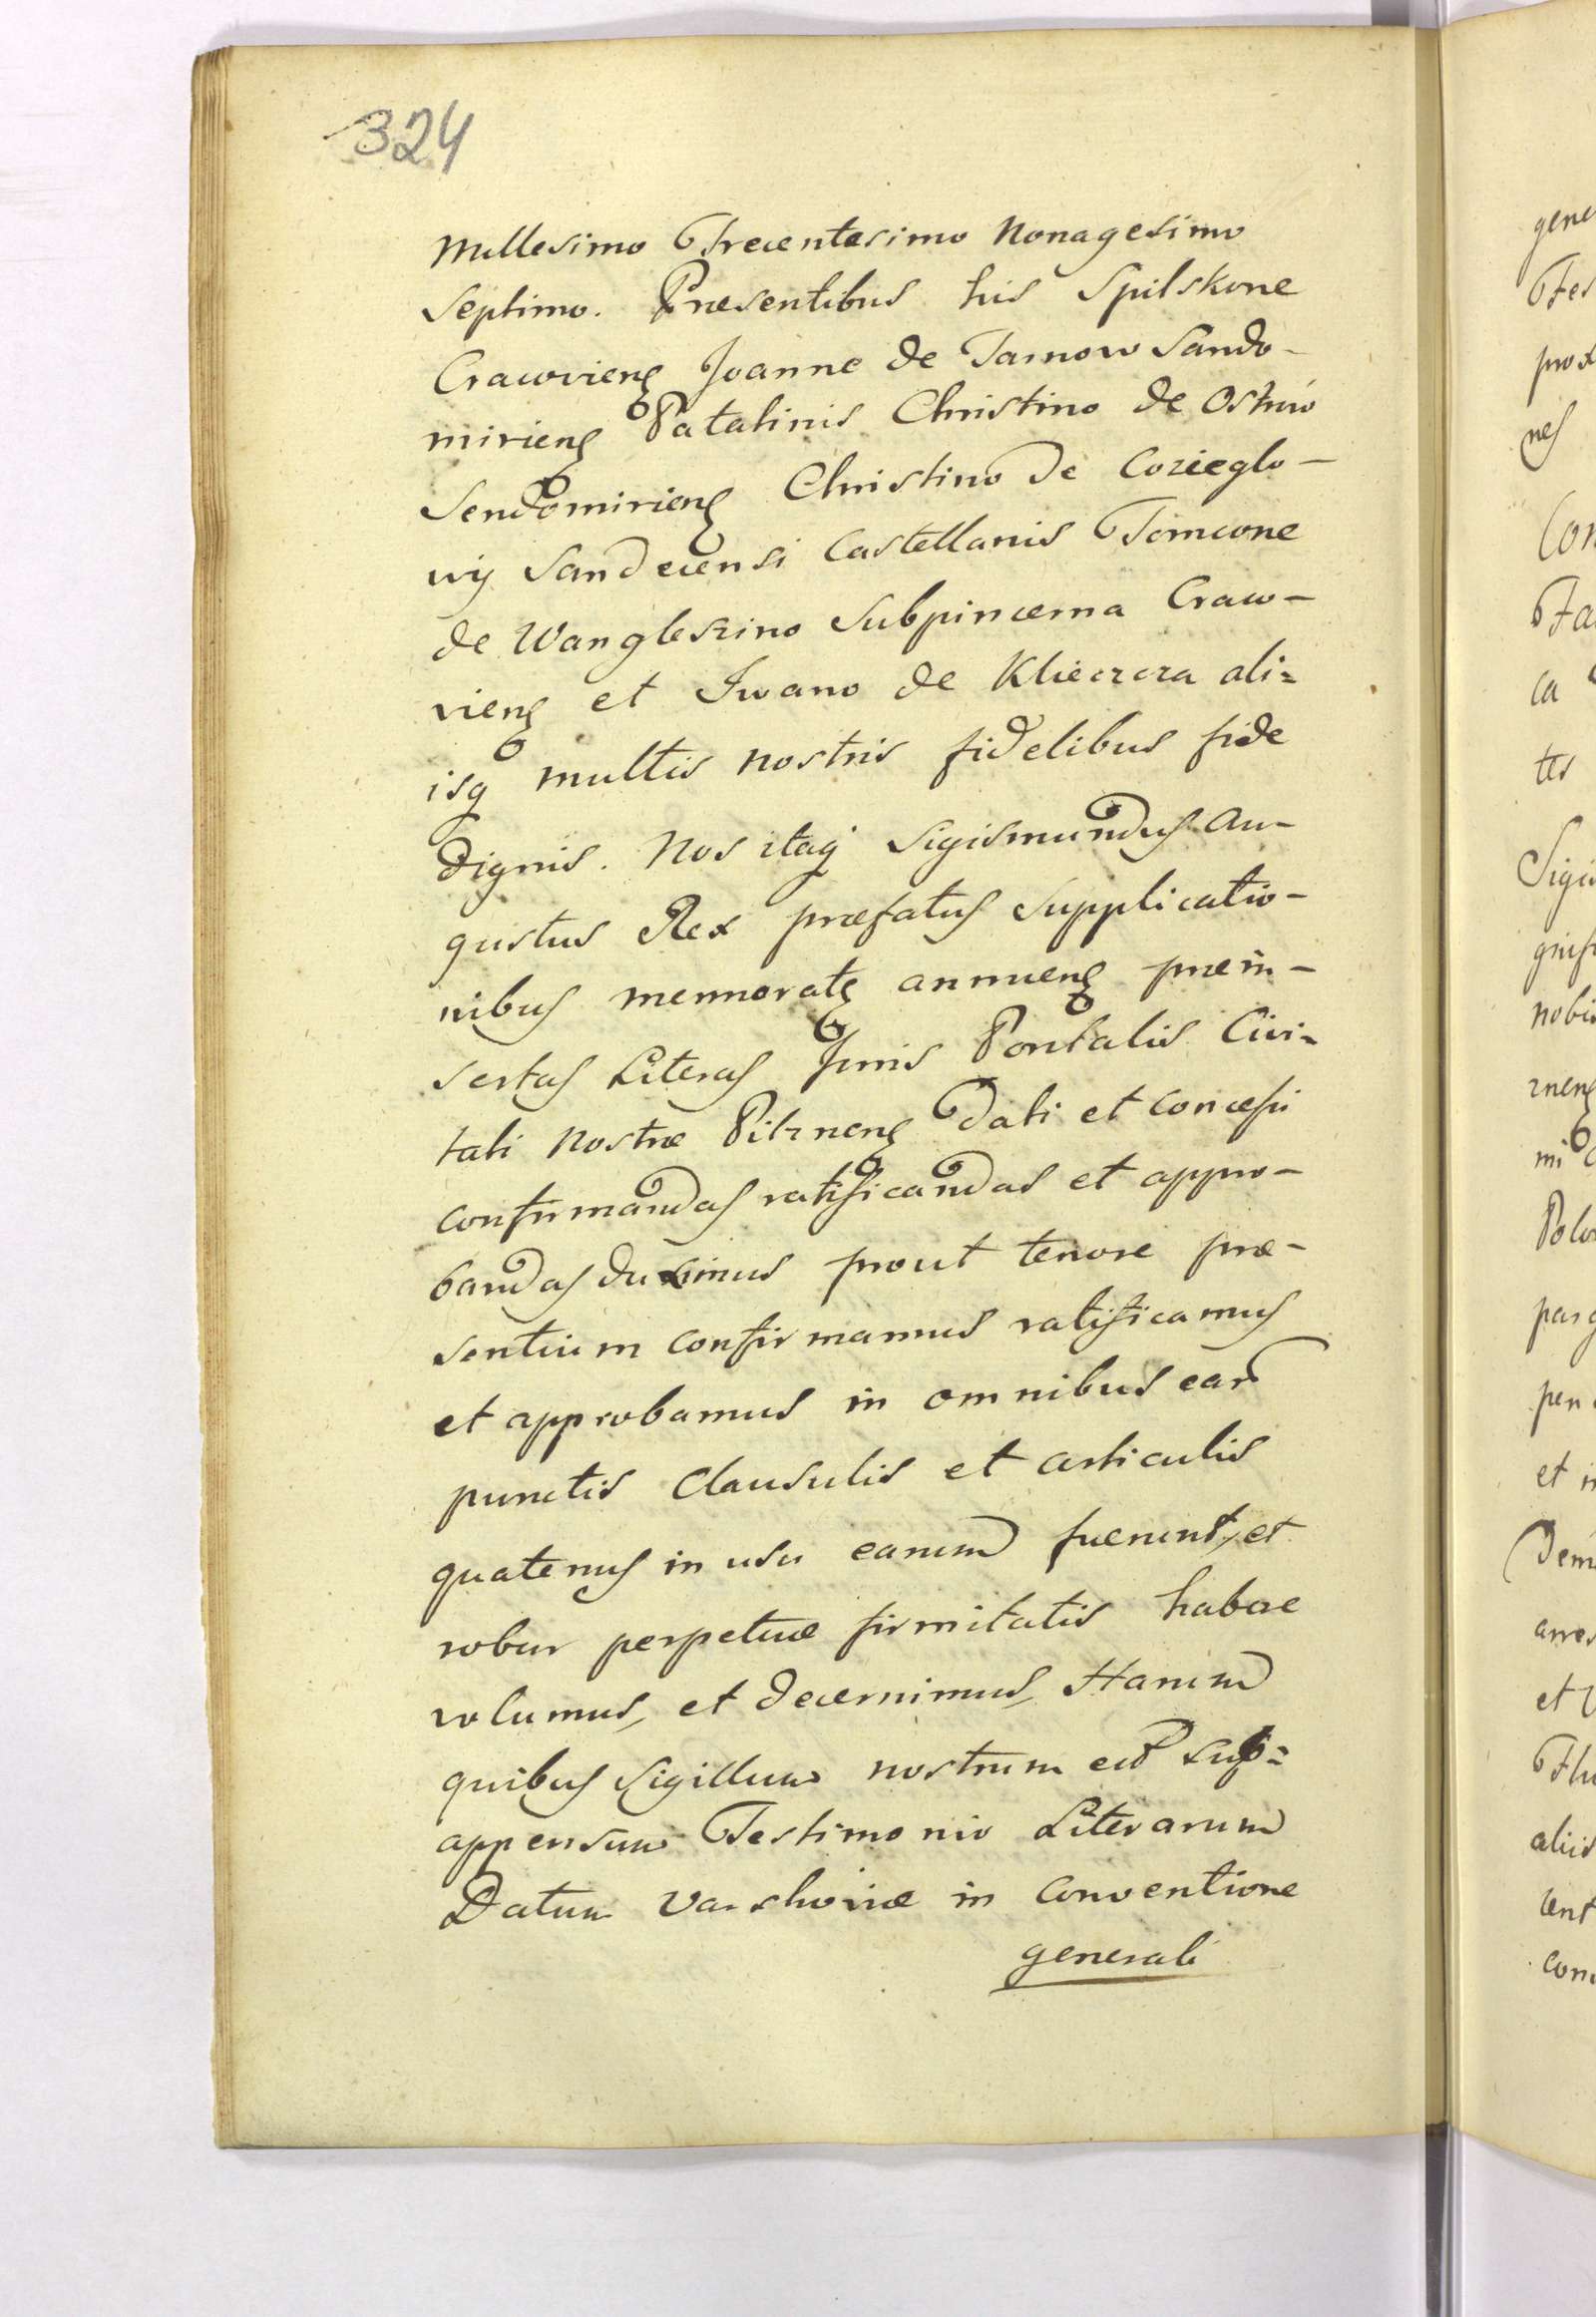 324
Millesimo Trecentesimo Nonagesimo
Septimo. Præsentibus his Spitskone
Cracovieng Joanne de Tarnow Sando-
mirieng Palatinis Christino de Ostrow
Sendomirieng Christino de Cozieglo-
wy Sandecensi Castellanis Tomcone
de Wangleszino Subpincerna Craco-
vieng et Iwano de Klieczcza ali=
isq multis nostris fidelibus fide
dignis. Nos itaq Sigismundus Au-
gustus Rex præfatus Supplicatio-
nibus memoratg annueng præin-
sertas Literas Juris Pontalis Civi=
tati Nostræ Pilzneng dati et concessi
confirmandas ratificandas et appro-
bandas duximus prout tenore præ-
sentium confirmamus ratificamus
et approbamus in omnibus ear
punctis Clausulis et articulis
quatenus in usu earum fuerunt, et
robur perpetuæ firmitatis habere
volumus, et decernimus, Harum
quibus Sigillum nostrum est sub=
appensum Testimonio Literarum
Datum Varshoviæ in Conventione
generali
gene
Tes
prox
nes
Con
ca
tes
nobis
zneng
Polo
et
et
aliis
cent